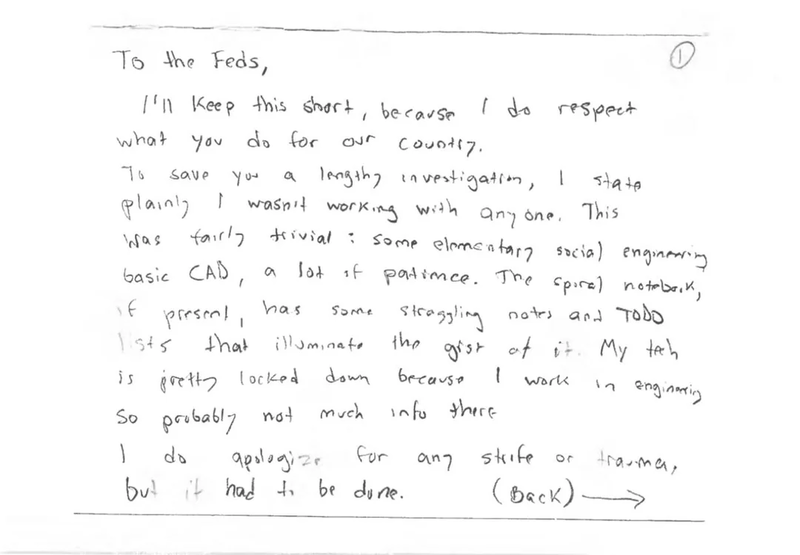 ①
To the Feds,
I'll Keep this short, because I do respect
what you do for our country.
To save you a lengthy investigation, I state
plainly I wasn't working with anyone. This
was fairly trivial: some elementary social engineering
basic CAD, a lot of patience. The spiral notebook,
if present, has some straggling notes and TODO
lists that illuminate the gist of it. My tech
is pretty locked down because I work in engineering
so probably not much info there
I do apologize for any strife or trauma,
but it had to be done. (Back) →